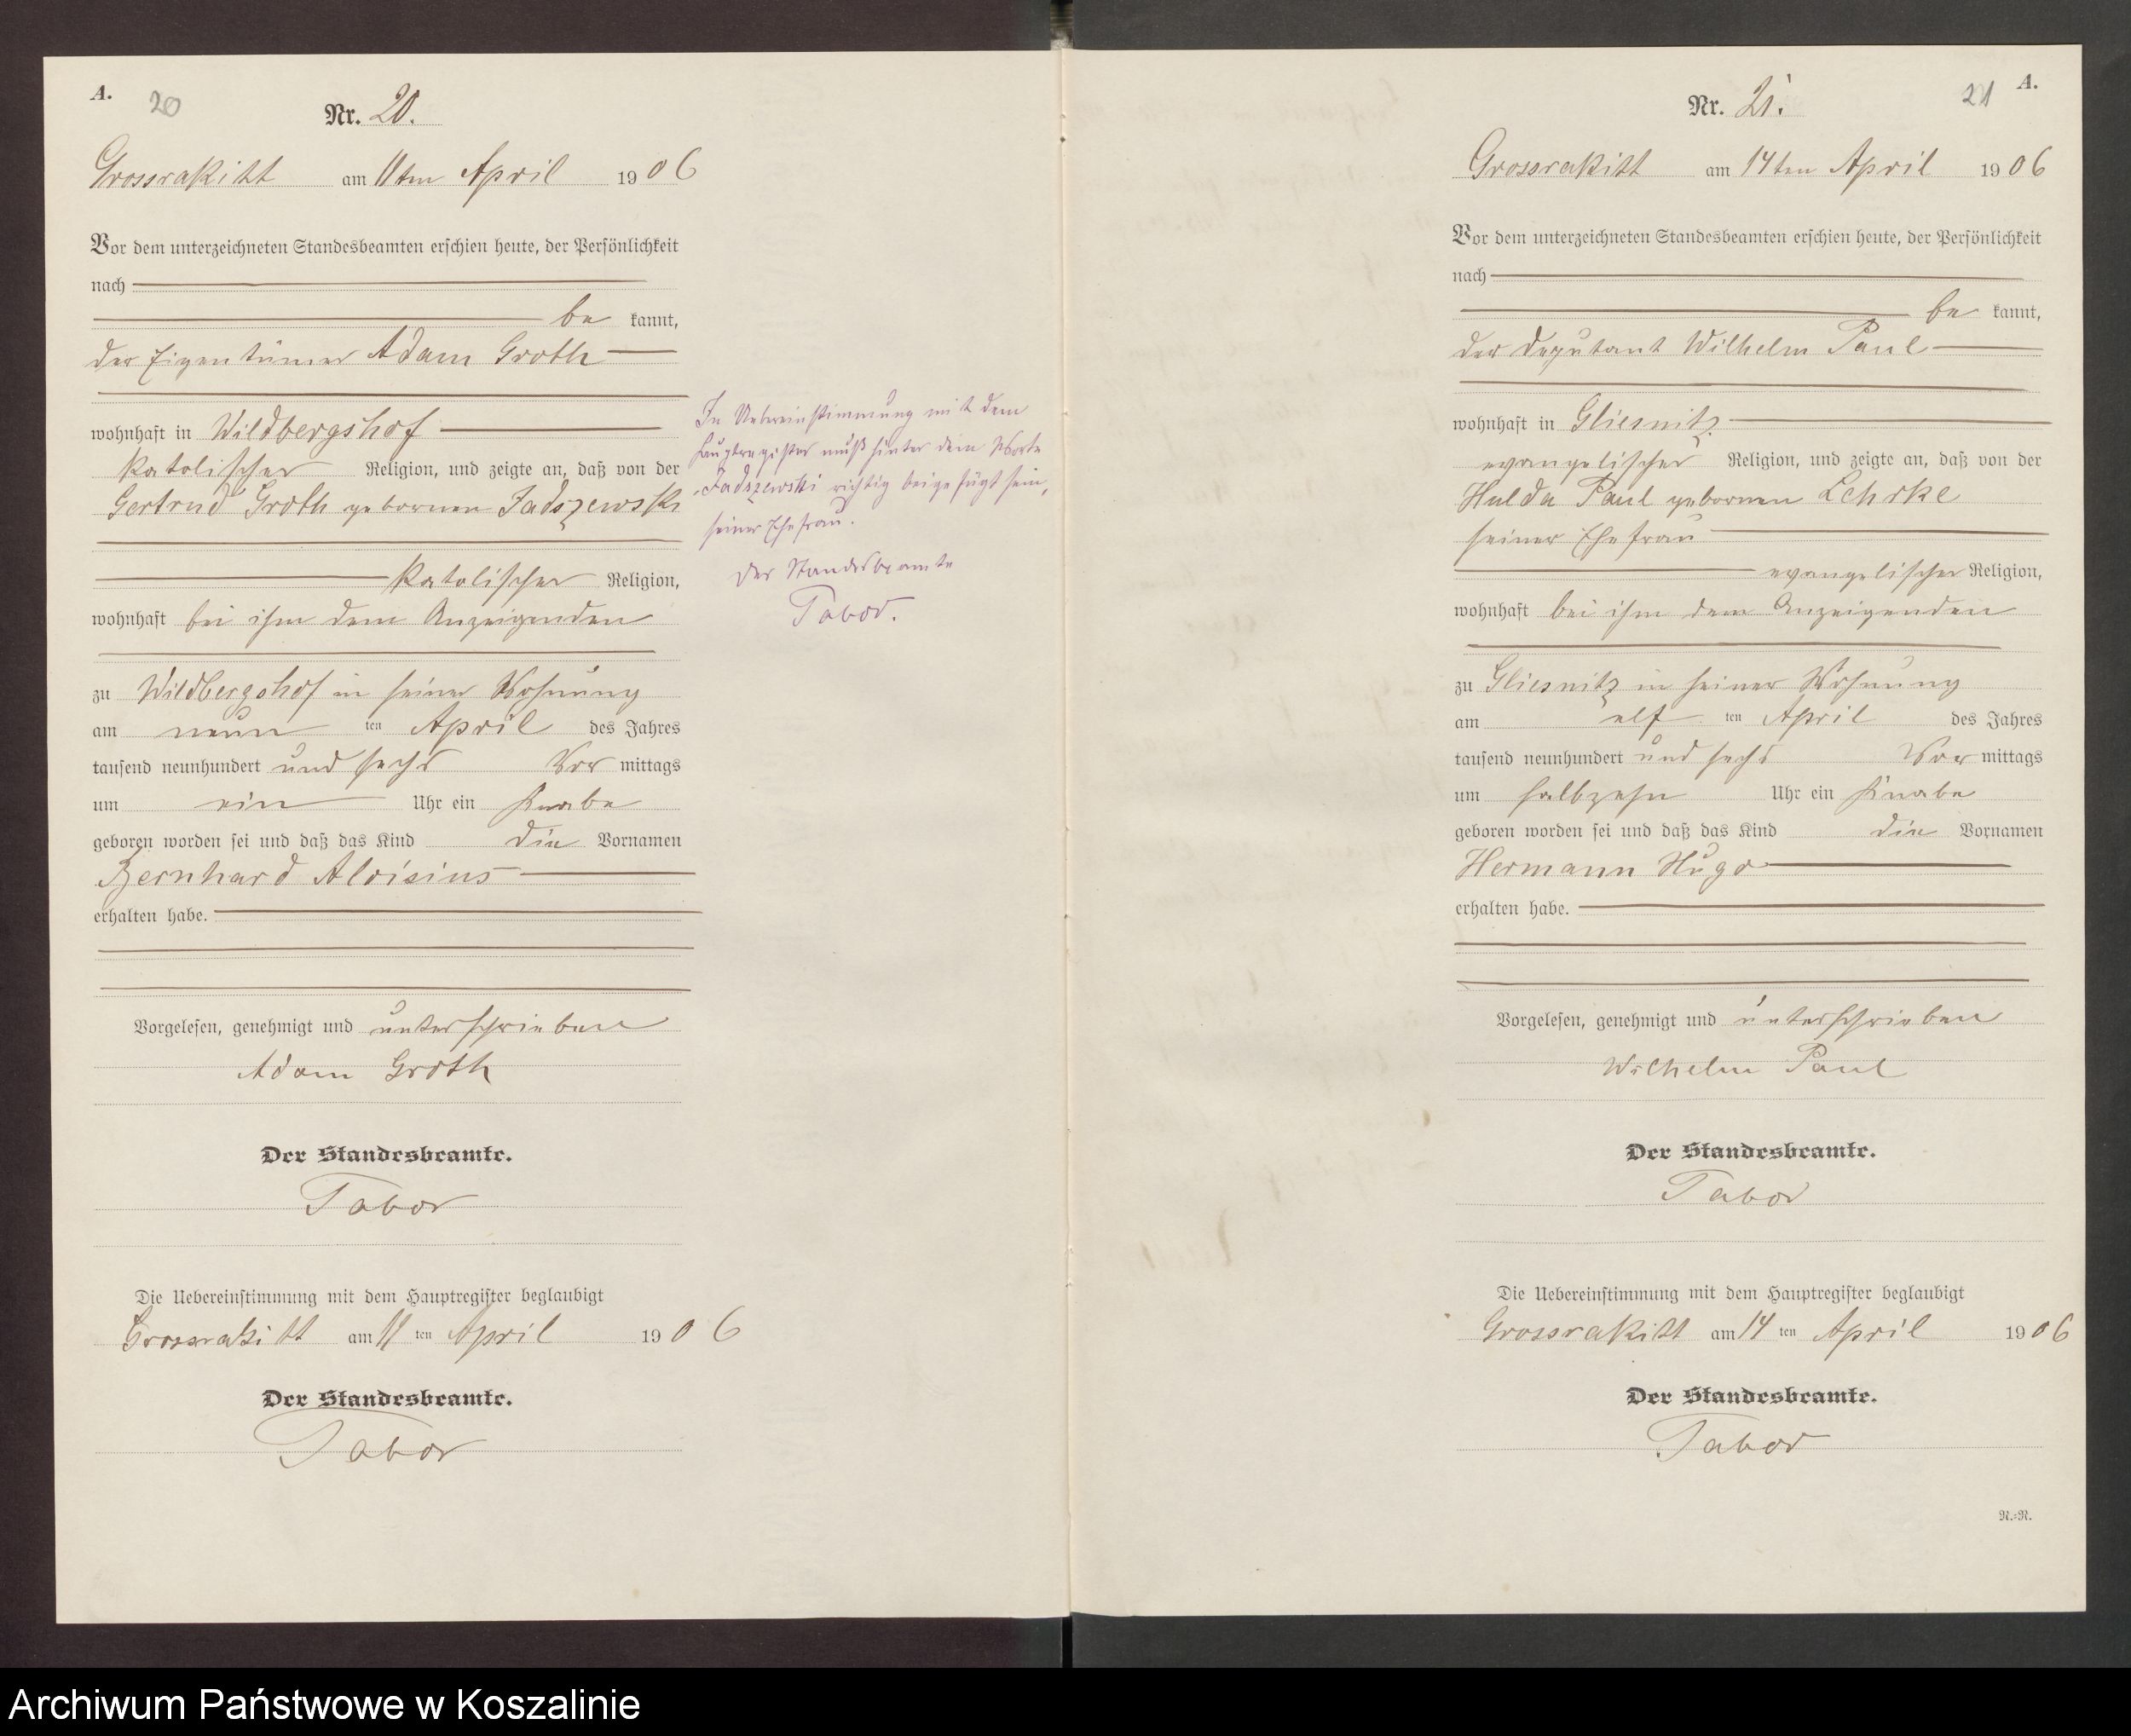 A.
20
Nr. 20.
Grossrakitt am 11ten April 1906
Vor dem unterzeichneten Standesbeamten erschien heute, der Persönlichkeit
nach
be kannt,
der Eigentümer Adam Groth
wohnhaft in Wildbergshof
katolischer Religion, und zeigte an, daß von der
Gertrud Groth gebornen Jadszewski
katolischer Religion,
wohnhaft bei ihm dem Anzeigenden
zu Wildbergshof in seiner Wohnung
am neun ten April des Jahres
tausend neunhundert und sechs Vor mittags
um ein Uhr ein Knabe
geboren worden sei und daß das Kind die Vornamen
Bernhard Aloisius
erhalten habe.
Vorgelesen, genehmigt und unterschrieben
Adam Groth
Der Standesbeamte.
Tabor
Die Uebereinstimmung mit dem Hauptregister beglaubigt
Grossrakitt am 11 ten April 1906
Der Standesbeamte.
Tabor
In Uebereinstimmung mit dem
Hauptregister muß hinter dem Worte
Jadszewski richtig beigefügt sein,
seiner Ehefrau.
Der Standesbeamte
Tabor.
21
A.
Nr. 21.
Grossrakitt am 14ten April 1906
Vor dem unterzeichneten Standesbeamten erschien heute, der Persönlichkeit
nach
be kannt,
der Deputant Wilhelm Paul
wohnhaft in Gliesnitz
evangelischer Religion, und zeigte an, daß von der
Hulda Paul gebornen Lehrke
seiner Ehefrau
evangelischer Religion,
wohnhaft bei ihm dem Anzeigenden
zu Gliesnitz in seiner Wohnung
am elf ten April des Jahres
tausend neunhundert und sechs Vor mittags
um halbzehn Uhr ein Knabe
geboren worden sei und daß das Kind die Vornamen
Hermann Hugo
erhalten habe.
Vorgelesen, genehmigt und unterschrieben
Wilhelm Paul
Der Standesbeamte.
Tabor
Die Uebereinstimmung mit dem Hauptregister beglaubigt
Grossrakitt am 14 ten April 1906
Der Standesbeamte.
Tabor
N.=R.
Archiwum Państwowe w Koszalinie